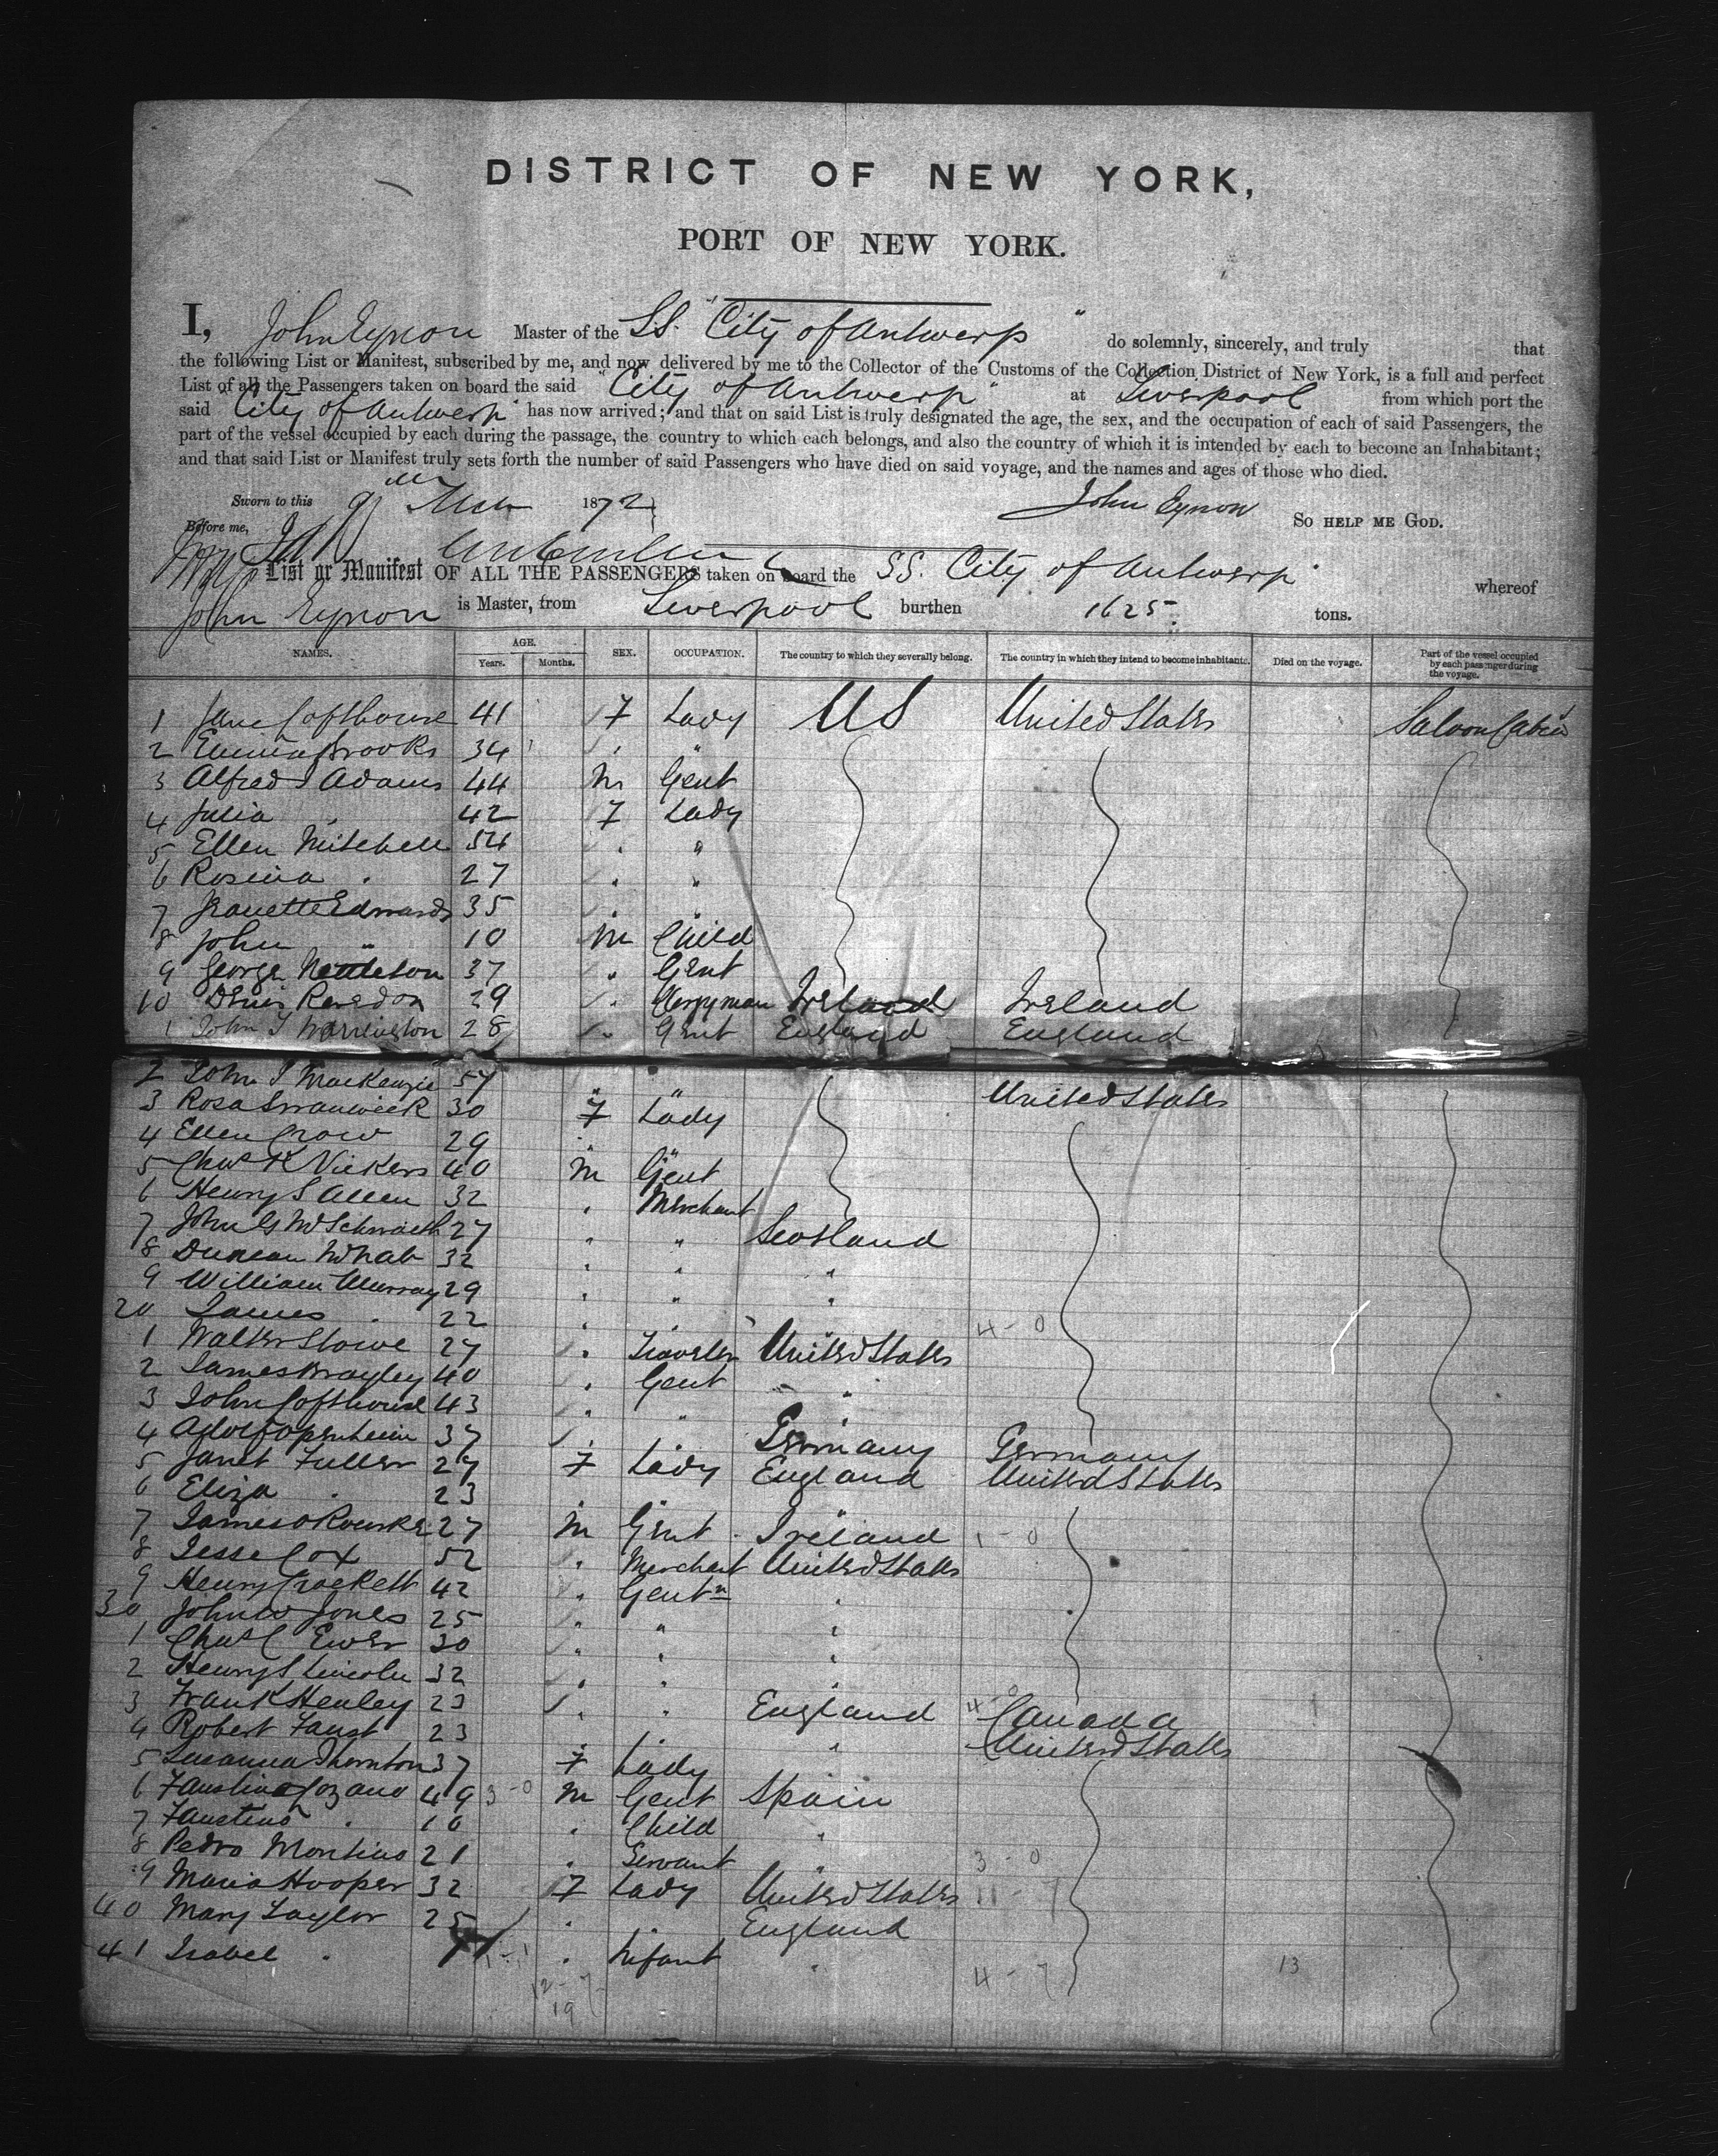 DISTRICT OF NEW YORK,
PORT OF NEW YORK.
I, John Eynon Master of the SS. "City of Antwerp" do solemnly, sincerely, and truly that
the following List or Manifest, subscribed by me, and now delivered by me to the Collector of the Customs of the Collection District of New York, is a full and perfect
List of all the Passengers taken on board the said "City of Antwerp" at Liverpool from which port the
said "City of Antwerp" has now arrived; and that on said List is truly designated the age, the sex, and the occupation of each of said Passengers, the
part of the vessel occupied by each during the passage, the country to which each belongs, and also the country of which it is intended by each to become an Inhabitant;
and that said List or Manifest truly sets forth the number of said Passengers who have died on said voyage, and the names and ages of those who died.
Sworn to this 9th 1872 John Eynon So HELP ME GOD.
Before me,
List or Manifest OF ALL THE PASSENGERS taken on board the SS. City of Antwerp whereof
John Eynon is Master, from Liverpool burthen 1625 tons.
NAMES. AGE. Years. Months. SEX. OCCUPATION. The country to which they severally belong. The country in which they intend to become inhabitants. Died on the voyage. Part of the vessel occupied by each passenger during the voyage.
1 Jane Lofthouse 41 F Lady US United States Saloon Cabin
2 Emma Brooks 34 " "
3 Alfred I Adams 44 M Gent
4 Julia " 42 F Lady
5 Ellen Mitchell 54 " "
6 Rosina " 27 " "
7 Jeanette Edwards 35 " "
8 John " 10 M Child
9 George Nettleton 37 " Gent
10 Denis Reardon 29 " Clergyman Ireland Ireland
1 John T Warrington 28 " Gent England England
2 John J MacKenzie 57 " " United States
3 Rosa Swanwick 30 F Lady
4 Ellen Crow 29 " "
5 Chas K Vickers 40 M Gent
6 Henry S Allen 32 " Merchant
7 John G 27 " " Scotland
8 Duncan McNab 32 " " "
9 William Murray 29 " " "
20 James " 22 " " " 4-0
1 Walter Stowe 27 " Traveler United States
2 James Brayley 40 " Gent "
3 John Lofthouse 43 " " "
4 Adolf Openheim 37 " " Germany Germany
5 Janet Fuller 27 F Lady England United States
6 Eliza " 23 " " "
7 James O Rourke 27 M Gent Ireland 1-0
8 Jesse Cox 52 " Merchant United States
9 Henry Crockett 42 " Gentn "
30 John W Jones 25 " " "
1 Chas C Ewer 30 " " "
2 Henry S Lincoln 32 " " "
3 Frank Henley 23 " " England 4-0 Canada
4 Robert Faust 23 " " " United States
5 Susanna Thornton 37 F Lady
6 Faustino Lozano 49 3-0 M Gent Spain
7 Faustino " 10 " Child "
8 Pedro Montino 21 " Servant " 3-0
9 Maria Hooper 32 F Lady United States 11-7
40 Mary Taylor 25 " " England
41 Isabel " 1-1 " Infant " 4-7 13
12-7
19